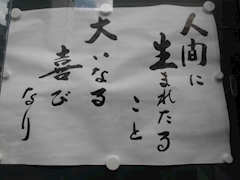 人間に
生まれたる
こと
大いなる
喜び
なり